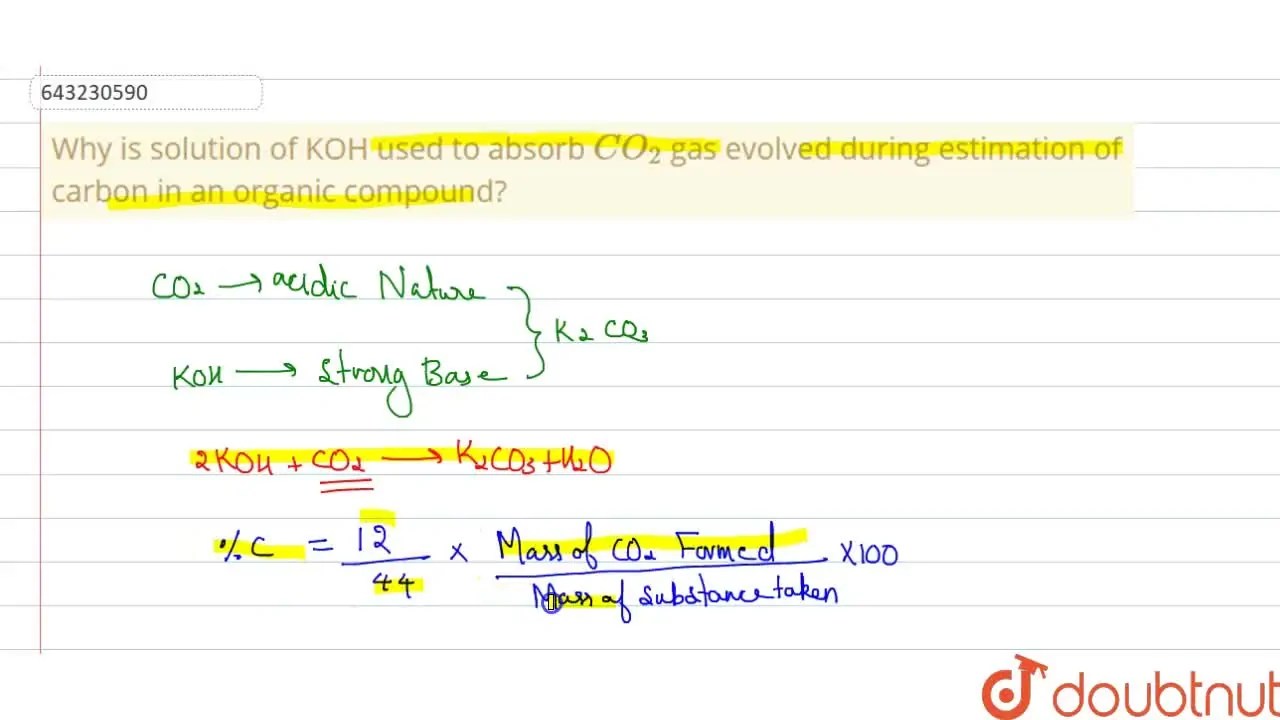 643230590
Why is solution of KOH used to absorb CO₂ gas evolved during estimation of
carbon in an organic compound?
CO₂ → acidic Nature
K₂CO₃
KOH → Strong Base
2KOH + CO₂ → K₂CO₃ + H₂O
% C = 12/44 × Mass of CO₂ Formed/Mass of Substance taken × 100
doubtnut